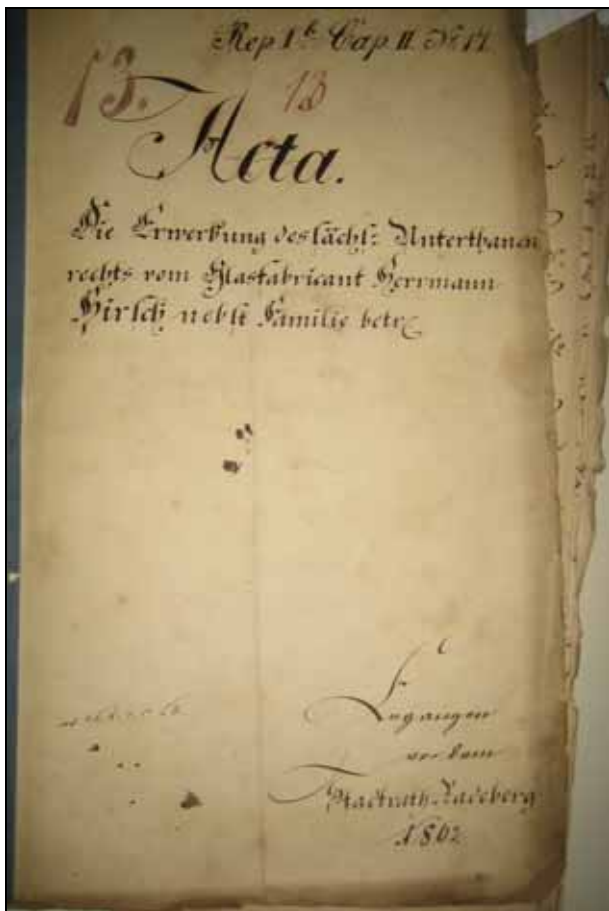 Rep I b Cap. II. № 17
13.
13
Acta.
Die Erwerbung des sächs: Unterthanen
rechts vom Glasfabricant Herrmann
Hirsch nebst Familie betr.
Ergangen
vor dem
Stadtrath Radeberg
1862